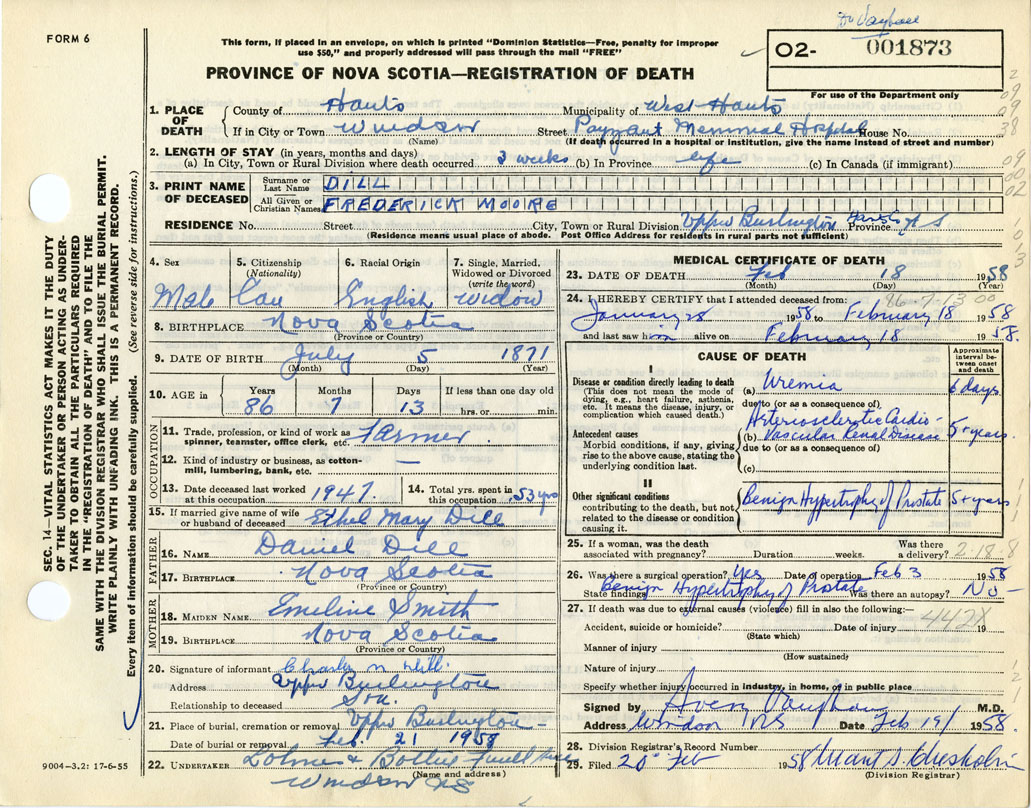 FORM 6
This form, if placed in an envelope, on which is printed "Dominion Statistics—Free, penalty for improper
use $50," and properly addressed will pass through the mail "FREE"
O2- 001873
For use of the Department only
PROVINCE OF NOVA SCOTIA—REGISTRATION OF DEATH
1. PLACE OF DEATH County of Hants Municipality of West Hants
If in City or Town Windsor Street Payzant Memorial Hospital House No.
(Name) (If death occurred in a hospital or institution, give the name instead of street and number)
2. LENGTH OF STAY (in years, months and days)
(a) In City, Town or Rural Division where death occurred 3 weeks (b) In Province life (c) In Canada (if immigrant)
3. PRINT NAME OF DECEASED Surname or Last Name DILL
All Given or Christian Names FREDERICK MOORE
RESIDENCE No. Street City, Town or Rural Division Upper Burlington Hants Province N S
(Residence means usual place of abode. Post Office Address for residents in rural parts not sufficient)
4. Sex 5. Citizenship (Nationality) 6. Racial Origin 7. Single, Married, Widowed or Divorced (write the word)
Male Can English Widow
8. BIRTHPLACE Nova Scotia
(Province or Country)
9. DATE OF BIRTH July 5 1871
(Month) (Day) (Year)
10. AGE in Years Months Days If less than one day old
86 7 13 hrs. or min.
OCCUPATION
11. Trade, profession, or kind of work as spinner, teamster, office clerk, etc. Farmer
12. Kind of industry or business, as cotton-mill, lumbering, bank, etc. —
13. Date deceased last worked at this occupation 1947 14. Total yrs. spent in this occupation 53 yrs
15. If married give name of wife or husband of deceased Ethel Mary Dill
FATHER
16. NAME Daniel Dill
17. BIRTHPLACE Nova Scotia
(Province or Country)
MOTHER
18. MAIDEN NAME Emeline Smith
19. BIRTHPLACE Nova Scotia
(Province or Country)
20. Signature of informant Charles N Dill
Address Upper Burlington
Relationship to deceased Son
21. Place of burial, cremation or removal Upper Burlington
Date of burial or removal Feb. 21 1958
22. UNDERTAKER
(Name and address)
Windsor NS
MEDICAL CERTIFICATE OF DEATH
23. DATE OF DEATH Feb 18 1958
(Month) (Day) (Year)
24. I HEREBY CERTIFY that I attended deceased from: 86-7-13 00
January 28 1958 to February 18 1958
and last saw him alive on February 18 1958.
CAUSE OF DEATH
Approximate interval between onset and death
I
Disease or condition directly leading to death
(This does not mean the mode of dying, e.g., heart failure, asthenia, etc. It means the disease, injury, or complication which caused death.)
(a) Uremia 6 days
due to (or as a consequence of)
Antecedent causes
Morbid conditions, if any, giving rise to the above cause, stating the underlying condition last.
Arteriosclerotic Cardio-
(b) Vascular Renal Disease 5+ years.
due to (or as a consequence of)
(c)
II
Other significant conditions contributing to the death, but not related to the disease or condition causing it.
Benign Hypertrophy of Prostate 5+ years
25. If a woman, was the death associated with pregnancy? Duration weeks. Was there a delivery? 2 18 8
26. Was there a surgical operation? Yes Date of operation Feb 3 1958
State findings Benign Hypertrophy of Prostate Was there an autopsy? No —
27. If death was due to external causes (violence) fill in also the following:—
Accident, suicide or homicide? Date of injury 19
(State which)
Manner of injury
(How sustained)
Nature of injury
Specify whether injury occurred in industry, in home, or in public place
Signed by M.D.
Address Windsor NS Date Feb 19/ 1958
28. Division Registrar's Record Number
29. Filed 20 Feb 1958
(Division Registrar)
9004-3.2: 17-6-55
SEC. 14—VITAL STATISTICS ACT MAKES IT THE DUTY
OF THE UNDERTAKER OR PERSON ACTING AS UNDER-
TAKER TO OBTAIN ALL THE PARTICULARS REQUIRED
IN THE "REGISTRATION OF DEATH" AND TO FILE THE
SAME WITH THE DIVISION REGISTRAR WHO SHALL ISSUE THE BURIAL PERMIT.
WRITE PLAINLY WITH UNFADING INK. THIS IS A PERMANENT RECORD.
Every item of information should be carefully supplied. (See reverse side for instructions.)